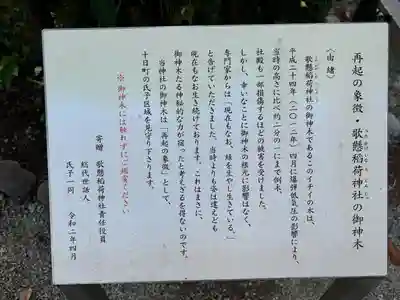 再起の象徴・歌懸稲荷神社の御神木
〈由緒〉
歌懸稲荷神社の御神木であるこのイチイの木は、
平成二十四年(二〇一二年)四月に爆弾低気圧の影響により、
当時の高さに比べ約二分の一にまで倒木、
社殿も一部損傷するほどの被害を受けました。
しかし、幸いなことに御神木の根元に影響はなく、
専門家からは「現在もなお、緑を生やし生きている。」
と告げていただきました。当時よりも姿は違えども
現在もなお生き続けております。これはまさに、
御神木たる神秘的な力が宿ったと考えざるを得ないのです。
当神社の御神木は「再起の象徴」として、
十日町の氏子区域を見守り下さります。
※御神木には触れずにご鑑賞ください
寄贈 歌懸稲荷神社責任役員
総代世話人
氏子一同 令和二年四月